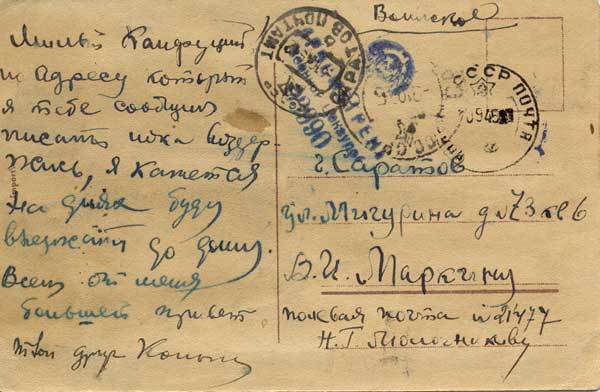 Милый Конфуций
по адресу который
я тебе сообщил
писать пока воздер-
жись, я кажется
на днях буду
выезжать до дому.
Всем от меня
большей привет
твой друг
Воинское
САРАТОВ ПОЧТАМТ
СССР ПОЧТА
г. Саратов
ул. Мичурина д. 73 кв 6
В. И. Маркину
полевая почта № 21477
Н. Г.